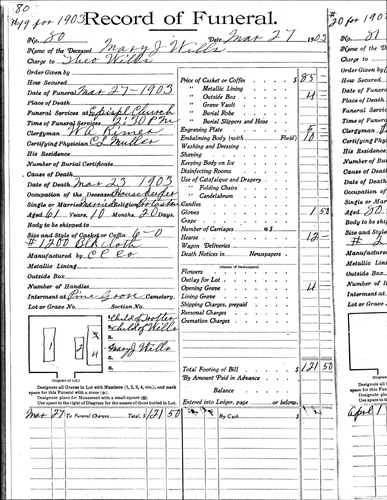 80
#19 for 1903
Record of Funeral.
No. 80 Date Mar 27 1903
Name of the Deceased Mary J Wills
Charge to Theo Wills
Order Given by
How Secured
Date of Funeral Mar 27-1903
Place of Death
Funeral Services at Epispl Church
Time of Funeral Services 2:30 PM
Clergyman W A
Certifying Physician C L Miller
His Residence
Number of Burial Certificate
Cause of Death
Date of Death Mar 23 1903
Occupation of the Deceased Housekeeper
Single or Married Married Religion
Aged 61 Years, 10 Months, 20 Days.
Body to be shipped to
Size and Style of Casket or Coffin 6-0
#1200 Blk Cloth
Manufactured by C C Co
Metallic Lining
Outside Box
Number of Handles
Interment at Pine Grove Cemetery.
Lot or Grave No. Section No.
1 2 3 4
1 Child of
2 Child of Wills
3
4 Mary J Wills
5
6
(Diagram of Lot.)
Designate all Graves in Lot with Numbers (1, 2, 3, 4, etc.), and mark
space for this Funeral with a cross (+).
Designate place for Monument with a small square
Use space to right of Diagram for names of those buried in Lot.
Price of Casket or Coffin $ 85
" Metallic Lining
" Outside Box 4
" Grave Vault
" Burial Robe
" Burial Slippers and Hose
Engraving Plate
Embalming Body (with Fluid) 10
Washing and Dressing
Shaving
Keeping Body on Ice
Disinfecting Rooms
Use of Catafalque and Drapery
" Folding Chairs
" Candelabrum
Candles
Gloves 1 50
Crape
Number of Carriages @ $
Hearse 12
Wagon Deliveries
Death Notices in Newspapers
(Names of Newspapers)
Flowers
Outlay for Lot
Opening Grave 4
Lining Grave
Shipping Charges, prepaid
Removal Charges
Cremation Charges
Total Footing of Bill $ 121 50
By Amount Paid in Advance
Balance
Entered into Ledger, page or below.
Mar 27 To Funeral Charges Total, $ 121 50 By Cash $
#20 for 190
No. 81
Name of
Charge to
Order Given
How Secured
Date of Fu
Place of De
Funeral Se
Time of Fu
Clergyman
Certifying
His Resid
Number of
Cause of D
Date of De
Occupation
Single or M
Aged 80
Body to be
Size and St
# 2
Manufactu
Metallic L
Outside Bo
Number of
Interment
Lot or Gra
Designate
space for this
Designate
Use space
April 1